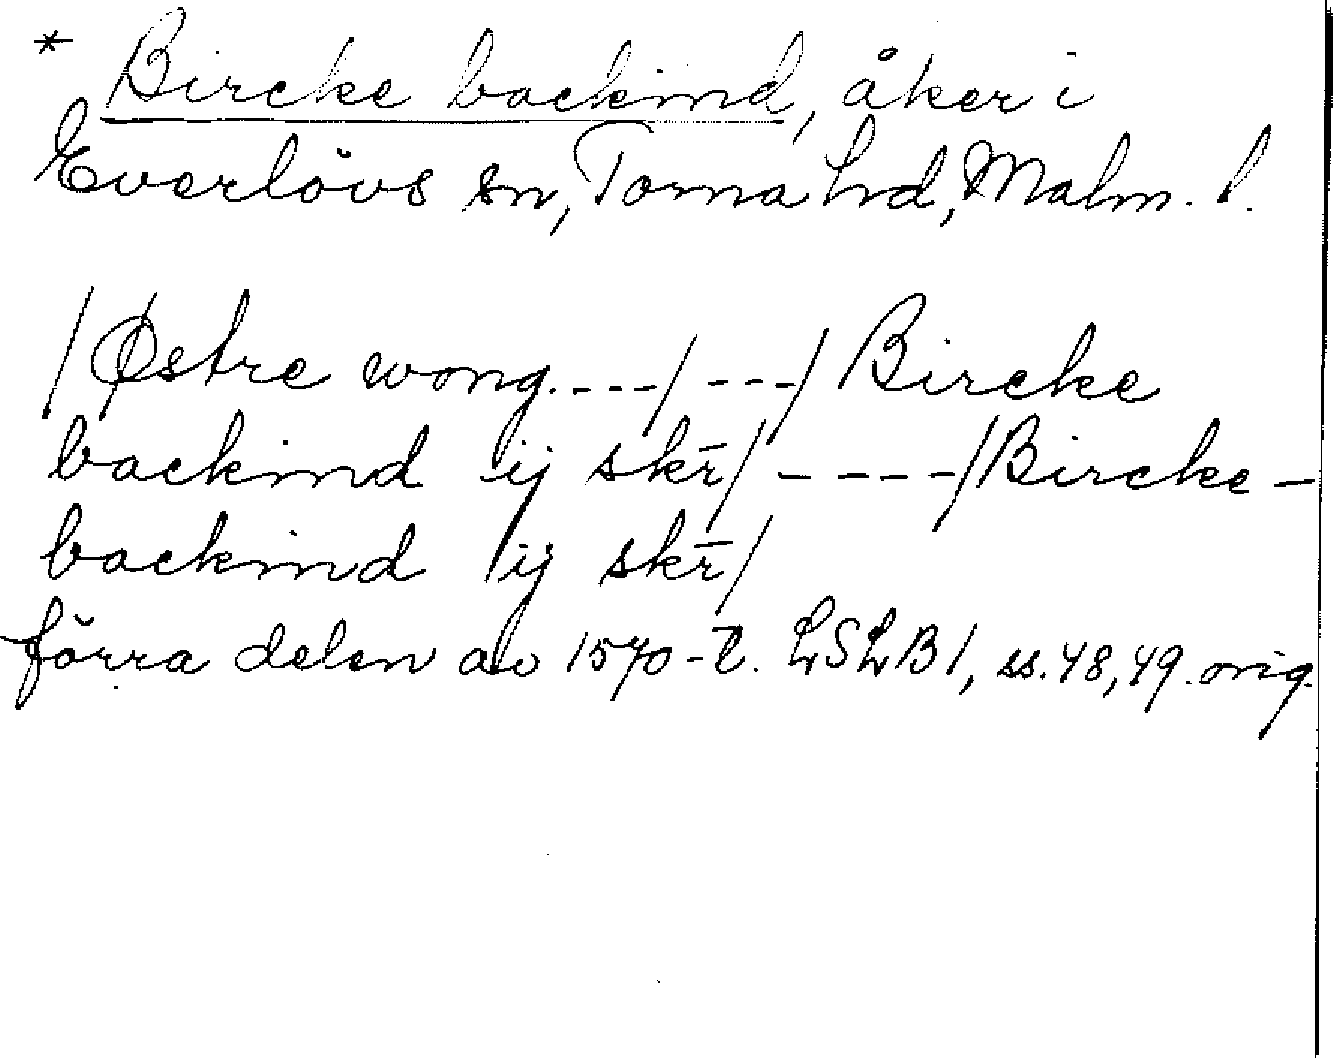 * Bircke backind, åker i
Everlövs sn, Torna hrd, Malm. l.
/Østre wong. ---/ ---/ Bircke
backind ij skr̄/ ----/Bircke-
backind ij skr̄/
förra delen av 1570-t. LSLB1, ss. 48, 49. orig.